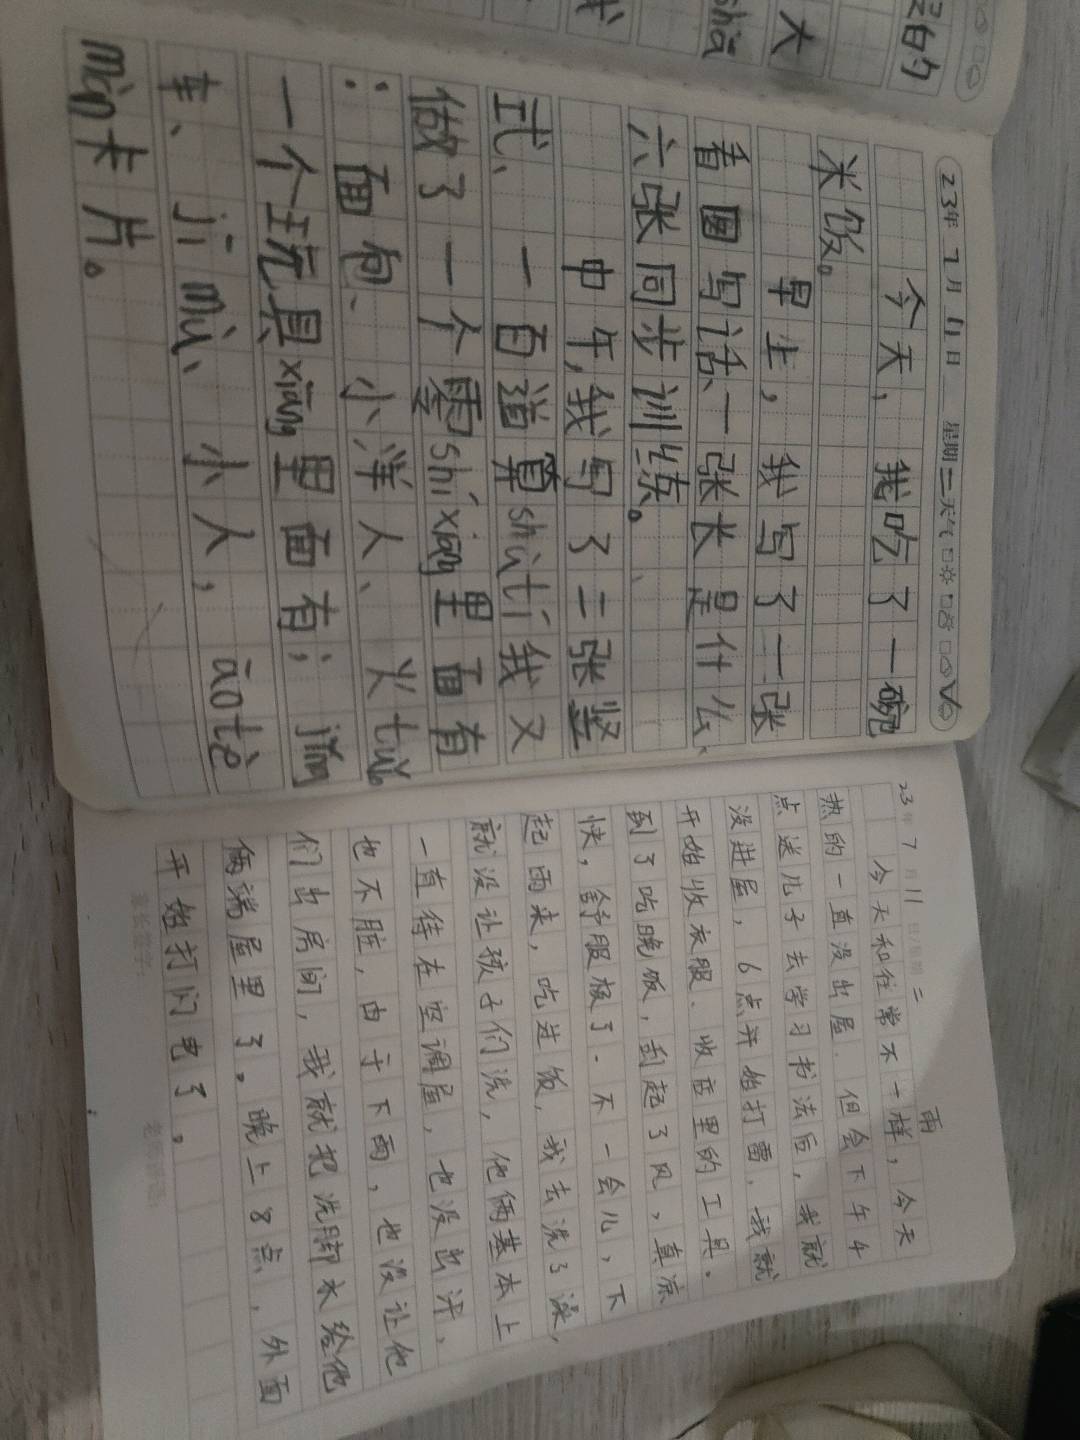 23年7月11日 星期二 天气
今天，我吃了一碗
米饭。
早上，我写了一张
看图写话、一张长是什么、
六张同步训练。
中午，我写了二张竖
式、一百道算shùtí我又
做了一个零shíxiāng里面有
：面包、小洋人、火tuǐ。
一个玩具xiāng里面有；jǐng
车、jīmù、小人，āotè
màn卡片。
23年7月11日 星期二 雨
今天和往常不一样，今天
热的一直没出屋.但会下午4
点送儿子去学习书法后，我就
没进屋，6点开始打雷.我就
开始收衣服.收店里的工具.
到了吃晚饭，刮起了风，真凉
快，舒服极了.不一会儿，下
起雨来，吃过饭，我去洗了澡，
就没让孩子们洗，他俩基本上
一直待在空调屋，也没出汗，
也不脏，由于下雨，也没让他
们出房间，我就把洗脚水给他
俩端屋里了。晚上8点，外面
开始打闪电了。
家长签字：